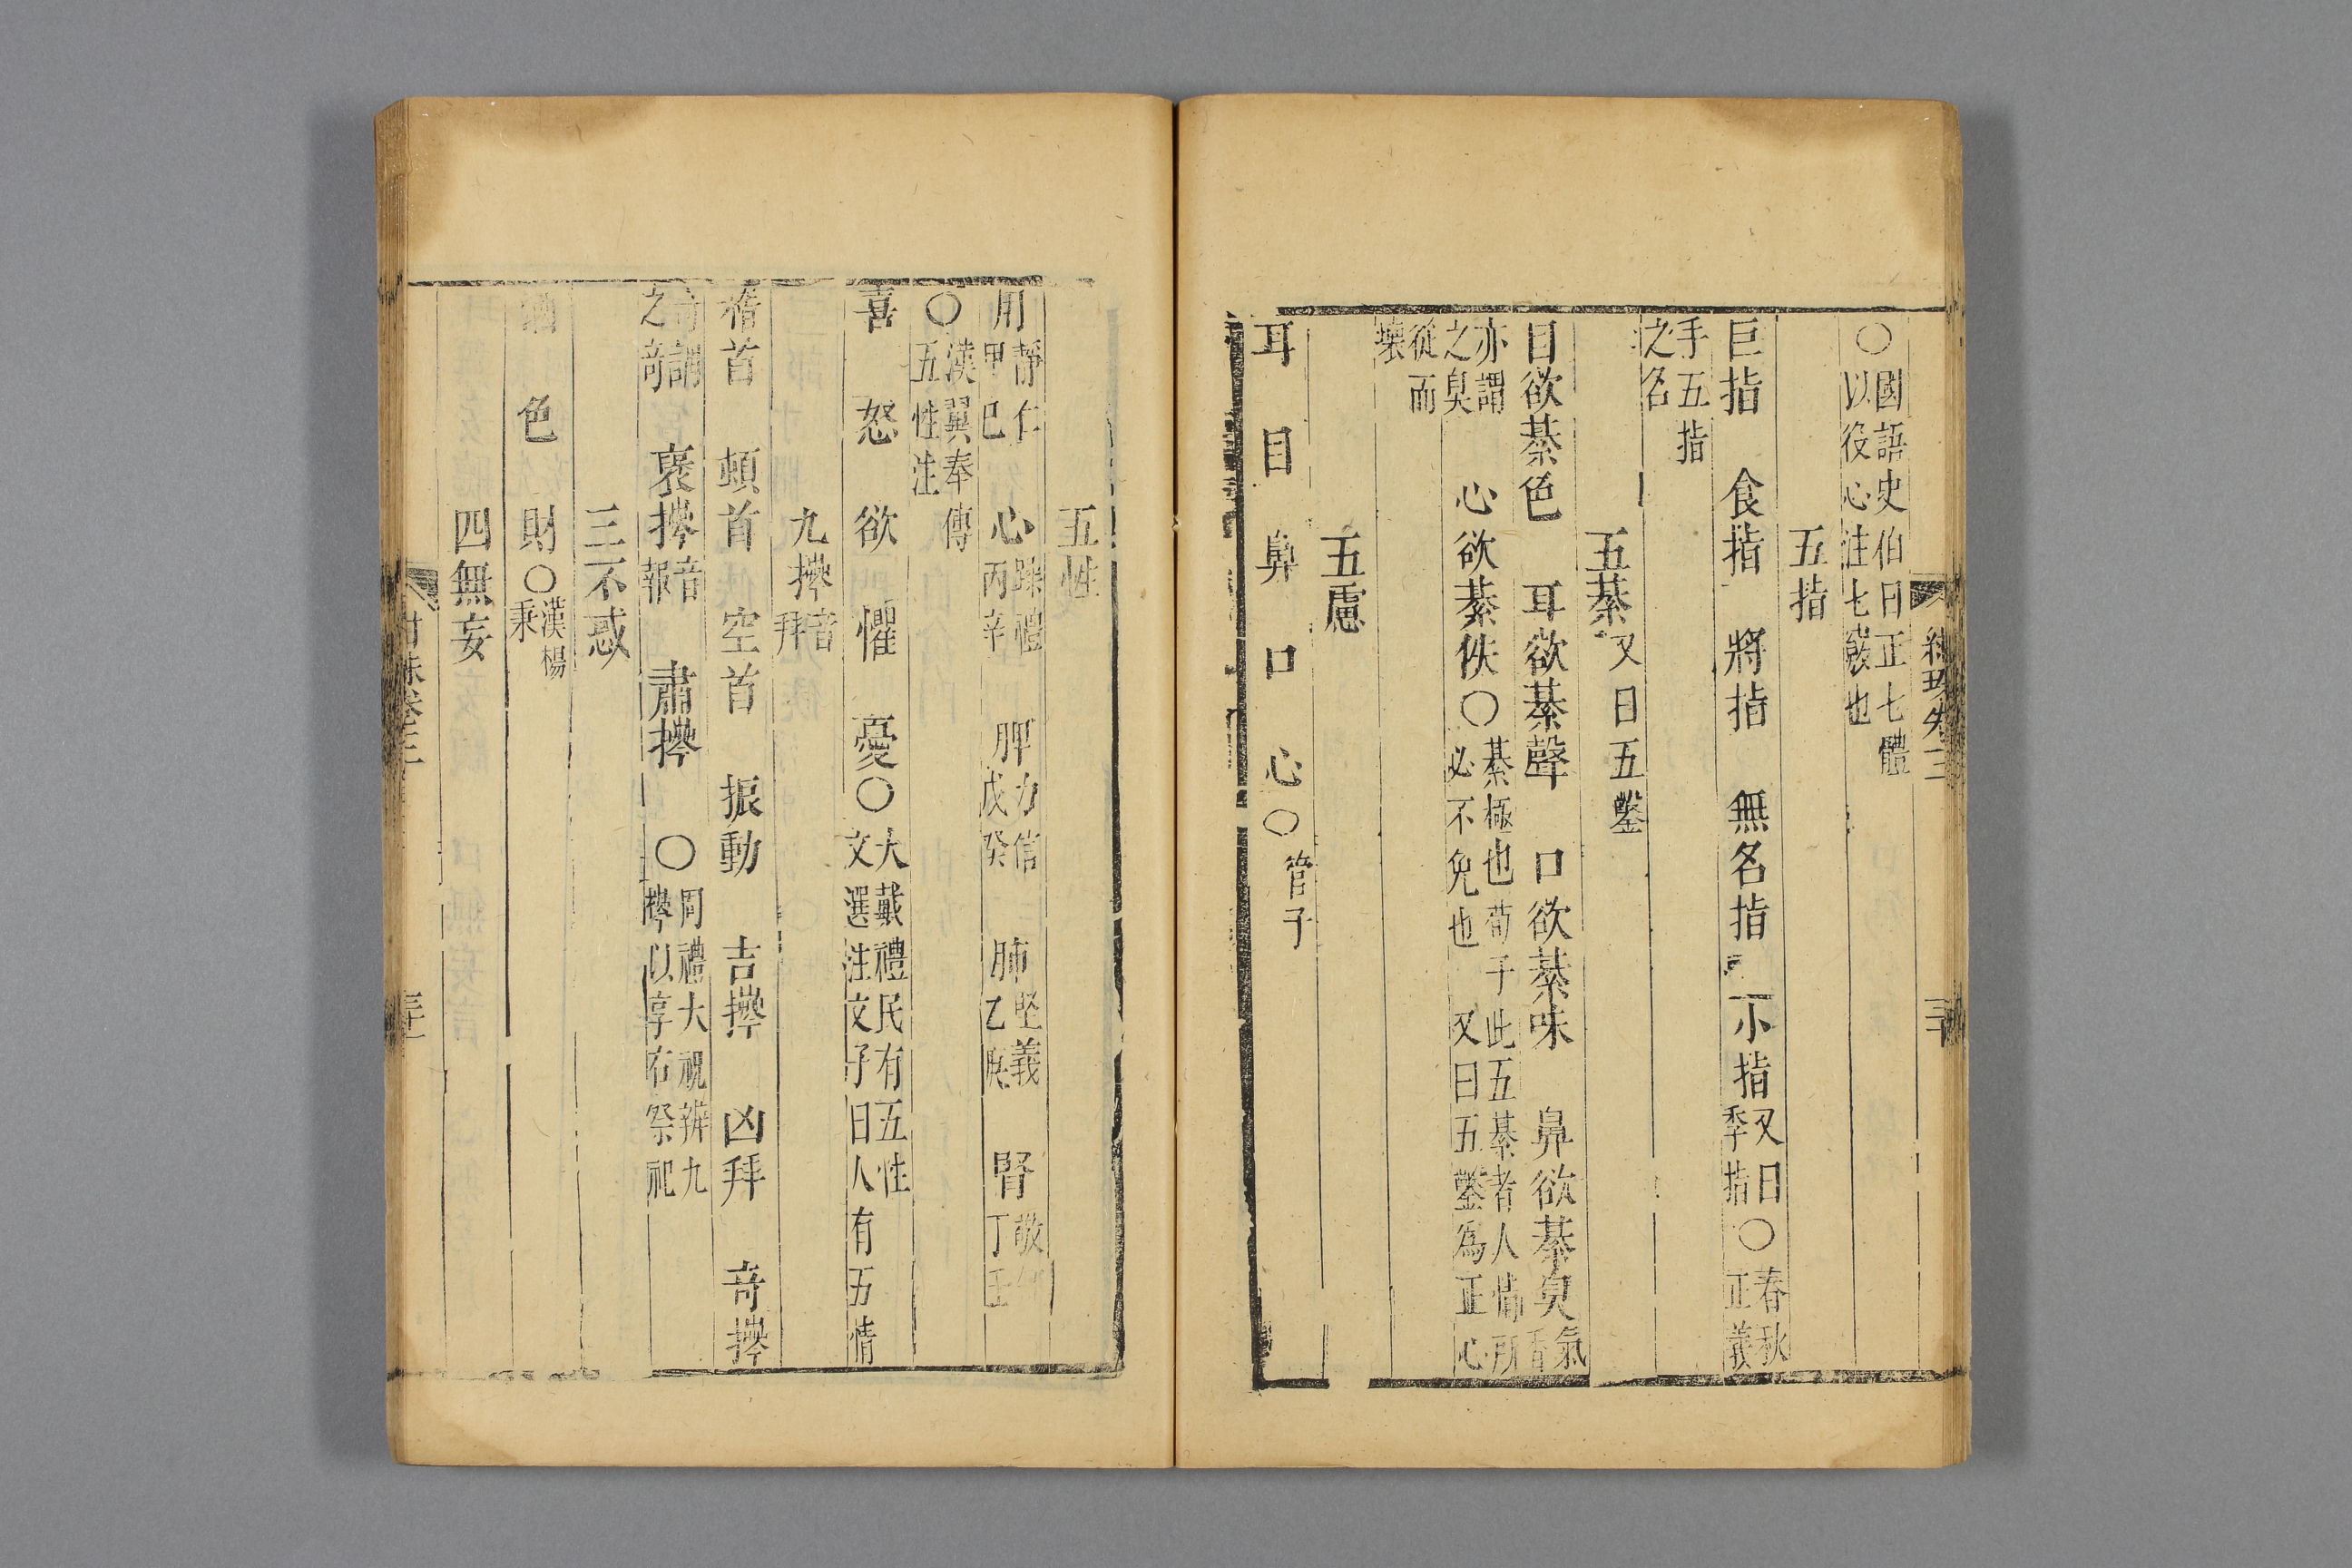 〇國語史伯曰正七體
以役心注七竅也
五指
巨指 食指 將指 無名指 小指又曰季指〇春秋正義
手五指
之名
五綦又曰五鑿
目欲綦色 耳欲綦聲 口欲綦味 鼻欲綦臭氣香
亦謂之臭 心欲綦佚〇綦極也荀子此五綦者人情所
必不免也 又曰五鑿爲正心
從而
壞
五慮
耳目鼻口心〇管子
五性
肝靜仁甲巳 心躁禮丙辛 脾力信戊癸 肺堅義乙庚 腎敬丁壬
〇漢翼奉傳
五性注
喜 怒 欲 懼 憂〇大戴禮民有五性
文選注文子曰人有五情
九𢷎音拜
稽首 頓首 空首 振動 吉𢷎 凶拜 奇𢷎
奇謂之奇 褒𢷎音報 肅𢷎 〇周禮大祝辨九
𢷎以享右祭祀
三不惑
酒 色 財〇漢楊秉
四無妄